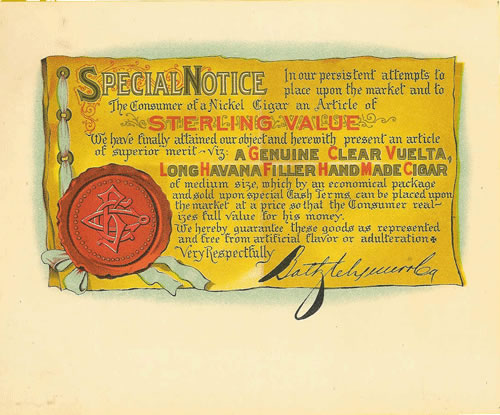 SPECIAL NOTICE In our persistent attempts to
place upon the market and to
The Consumer of a Nickel Cigar an Article of
STERLING VALUE
We have finally attained our object and herewith present an article
of superior merit - Viz: A GENUINE CLEAR VUELTA,
LONG HAVANA FILLER HAND MADE CIGAR
of medium size, which by an economical package
and sold upon special Cash Terms, can be placed upon
the market at a price, so that the Consumer real-
izes full value for his money.
We hereby guarantee these goods as represented
and free from artificial flavor or adulteration
Very Respectfully